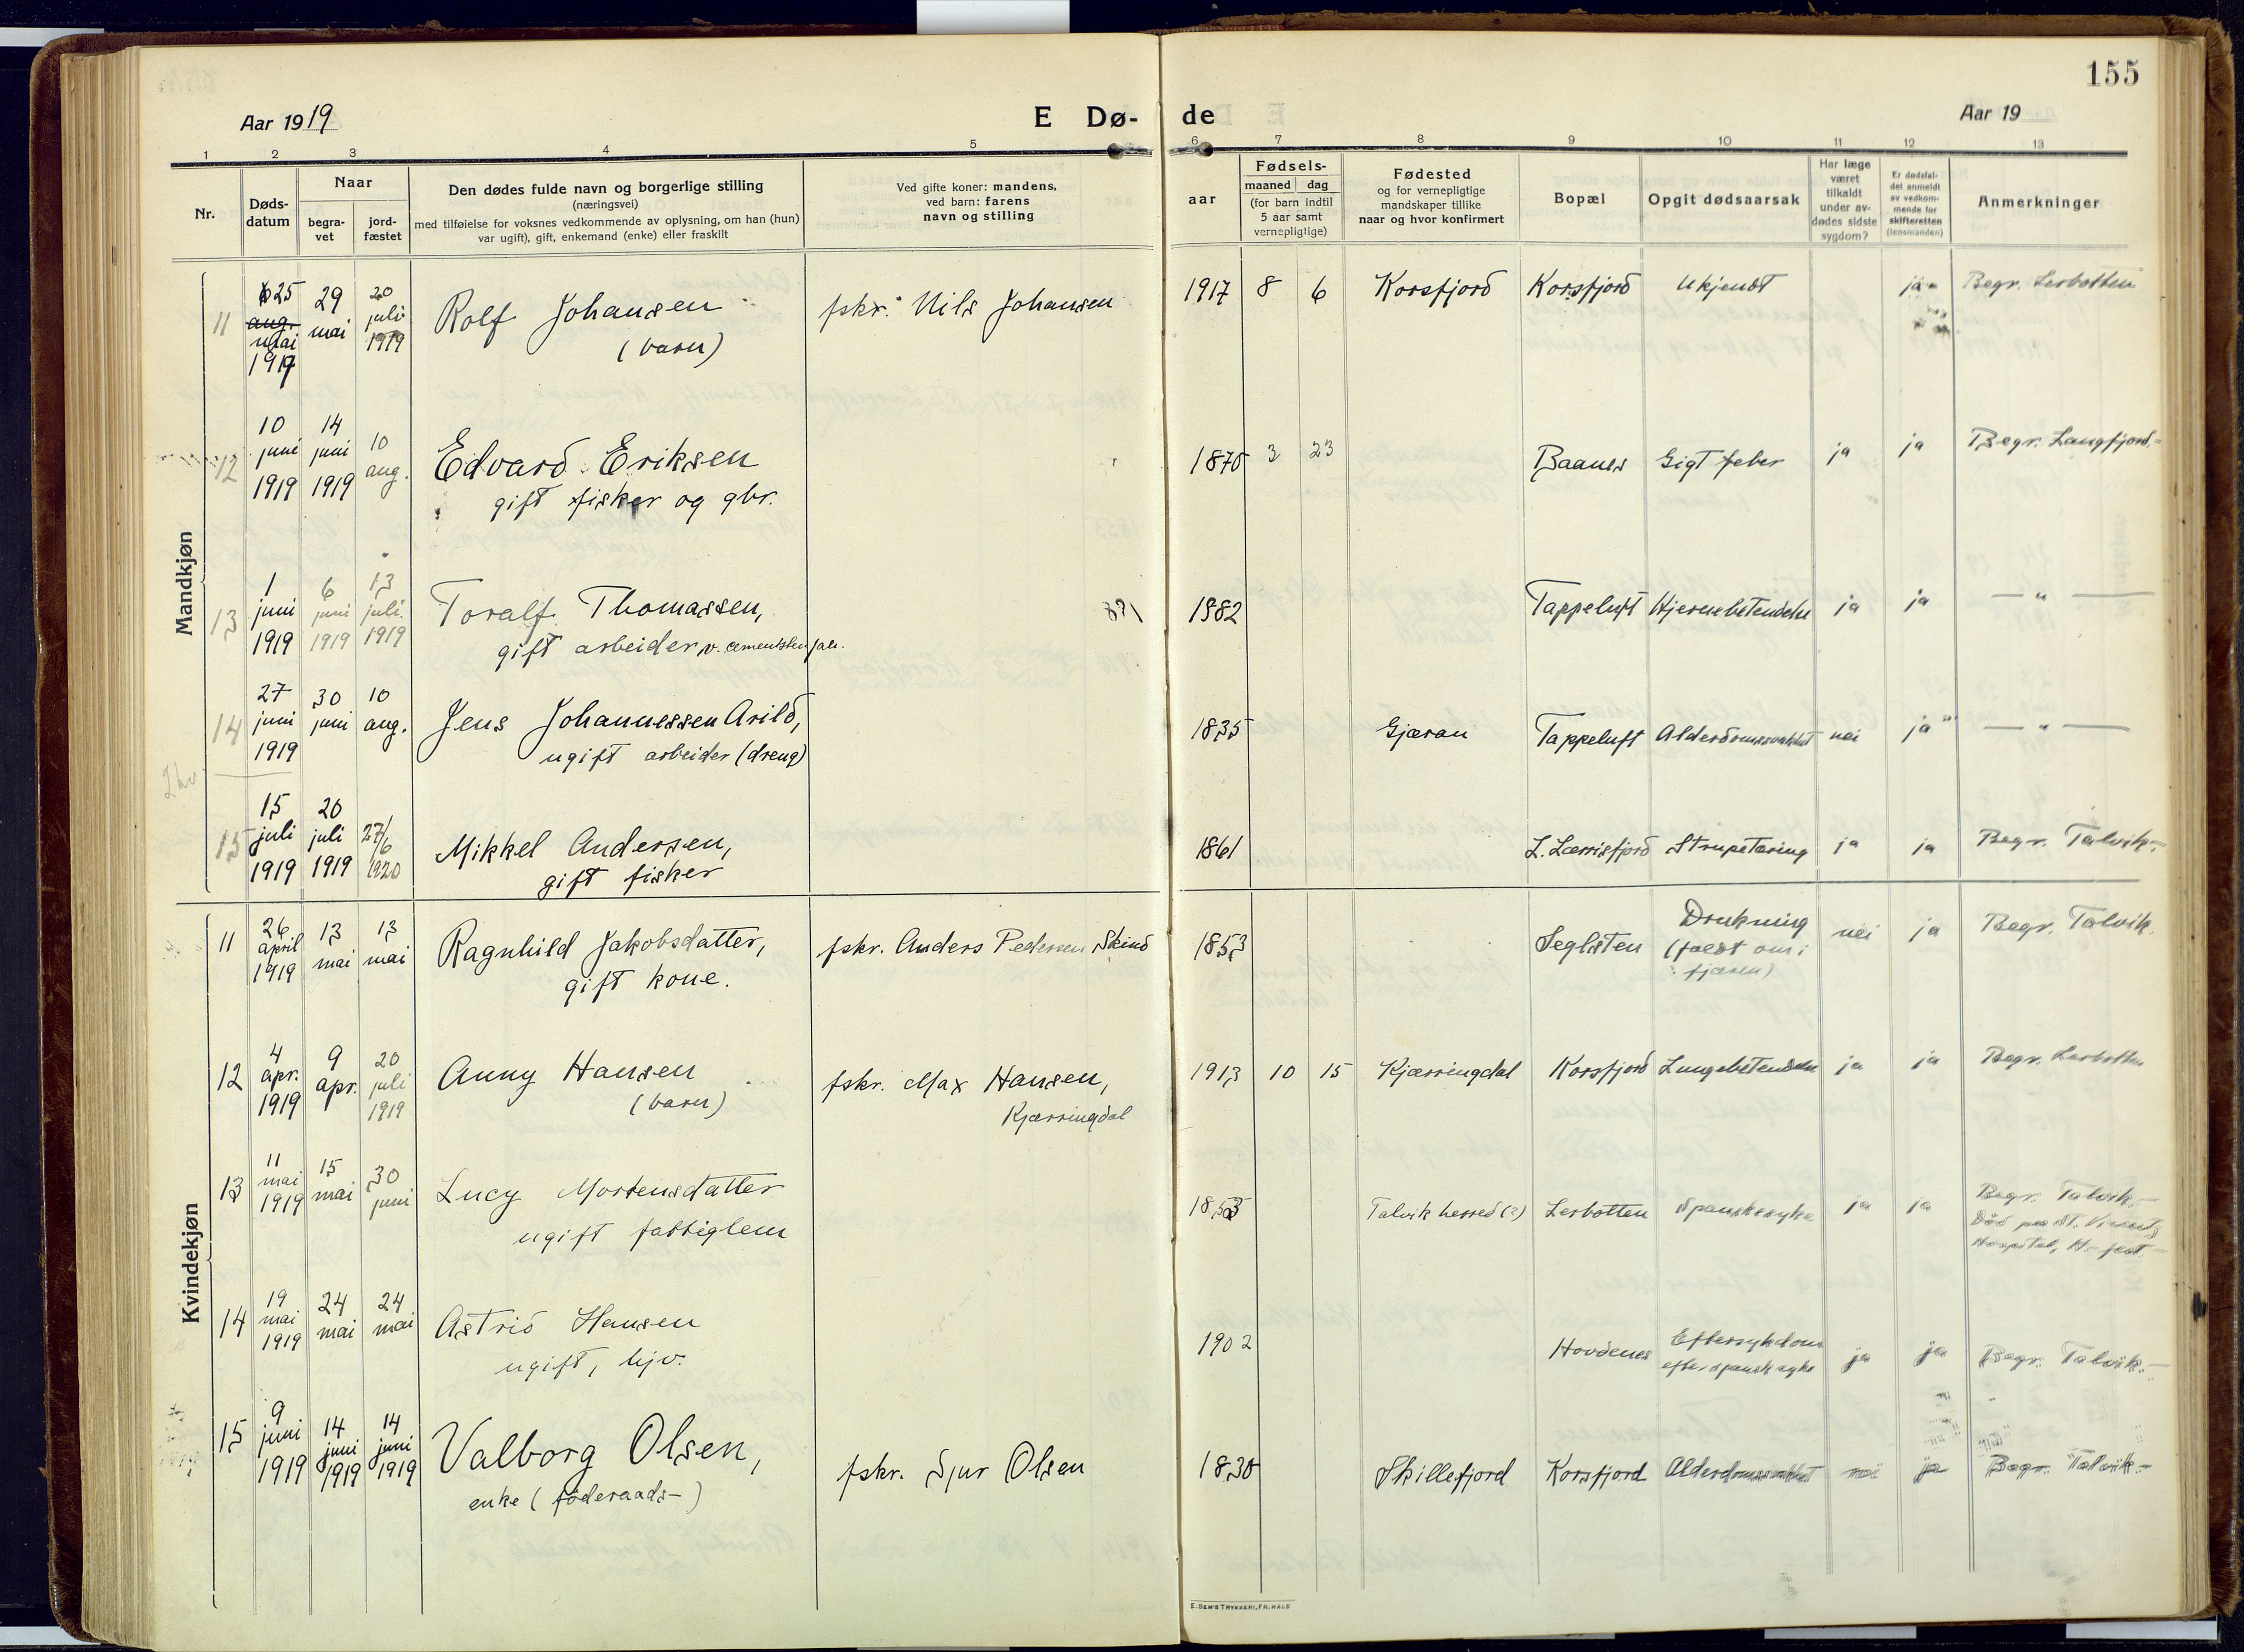 155
Aar 1919
E Dø-
de
Aar 19
1 2 3 4 5 6 7 8 9 10 11 12 13
Nr.
Døds-
datum
Naar
begra-
vet
jord-
fæstet
Den dødes fulde navn og borgerlige stilling
(næringsvei)
med tilføielse for voksnes vedkommende av oplysning, om han (hun)
var ugift), gift, enkemand (enke) eller fraskilt
Ved gifte koner: mandens,
ved barn: farens
navn og stilling
aar
Fødsels-
maaned dag
(for barn indtil
5 aar samt
vernepligtige)
Fødested
og for vernepligtige
mandskaper tillike
naar og hvor konfirmert
Bopæl
Opgit dødsaarsak
Har læge
været
tilkaldt
under av-
dødes sidste
sygdom?
Er dødsfal-
det anmeldt
av vedkom-
mende for
skifteretten
(lensmanden)
Anmerkninger
Mandkjøn
11
25
aug.
mai
1919
29
mai
20
juli
1919
Rolf Johansen
(barn)
fskr. Nils Johansen
1917 8 6 Korsfjord Korsfjord Ukjendt ja Begr. Lerbotten
12
10
juni
1919
14
juni
1919
10
aug.
Edvard Eriksen
gift fisker og gbr.
1870 3 23 Baanes Gigtfeber ja ja Begr. Langfjord
13
1
juni
1919
6
juni
1919
13
juli
1919
Toralf Thomassen,
gift arbeider v. cementsten
1882 Tappeluft Hjernebetendelse ja ja — " —
14
27
juni
1919
30
juni
10
aug.
Jens Johannessen Arild,
ugift arbeider (dreng)
1835 Gjæran Tappeluft Alderdomssvakhet nei ja — " —
15
15
juli
1919
20
juli
1919
27/6
1920
Mikkel Andersen,
gift fisker
1861 L. Lærrisfjord Strupetæring ja ja Begr. Talvik
Kvindekjøn
11
26
april
1919
13
mai
13
mai
Ragnhild Jakobsdatter,
gift kone.
fskr. Anders Pedersen Skind
1853 Seglsten Drukning nei ja Begr. Talvik.
(faldt om i
fjæren)
12
4
apr.
1919
9
apr.
20
juli
1919
Anny Hansen
(barn)
fskr. Max Hansen,
Kjærringdal
1913 10 15 Kjærringdal Korsfjord Lungebetendelse ja ja Begr. Lerbotten
13
11
mai
1919
15
mai
30
juni
Lucy Mortensdatter
ugift fattiglem
Talvik herred (?) Lerbotten Spanskesyke ja ja Begr. Talvik.
Død paa St. Vincents
Hospital, H.-fest.
14
19
mai
1919
24
mai
24
mai
Astrid Hansen
ugift, hjv.
1902 Hovdenes Eftersykdom ja ja Begr. Talvik.
efter spansk syke
15
9
juni
1919
14
juni
1919
14
juni
1919
Valborg Olsen,
enke (føderaads-)
fskr. Sjur Olsen
1830 Skillefjord Korsfjord Alderdomssvakhet nei ja Begr. Talvik.